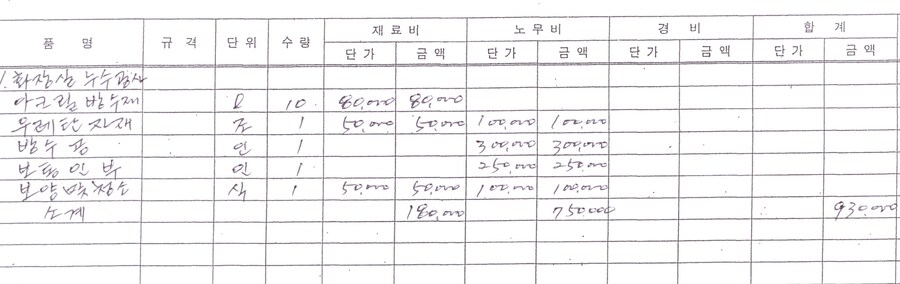 품 명 규 격 단 위 수 량 재 료 비 노 무 비 경 비 합 계
단 가 금 액 단 가 금 액 단 가 금 액 단 가 금 액
1. 화장실 누수공사
아크릴 방수재 ℓ 10 80,000 80,000
우레탄 자재 조 1 50,000 50,000 100,000 100,000
방수공 인 1 300,000 300,000
보통인부 인 1 250,000 250,000
보양및청소 식 1 50,000 50,000 100,000 100,000
소계 180,000 750,000 930,000